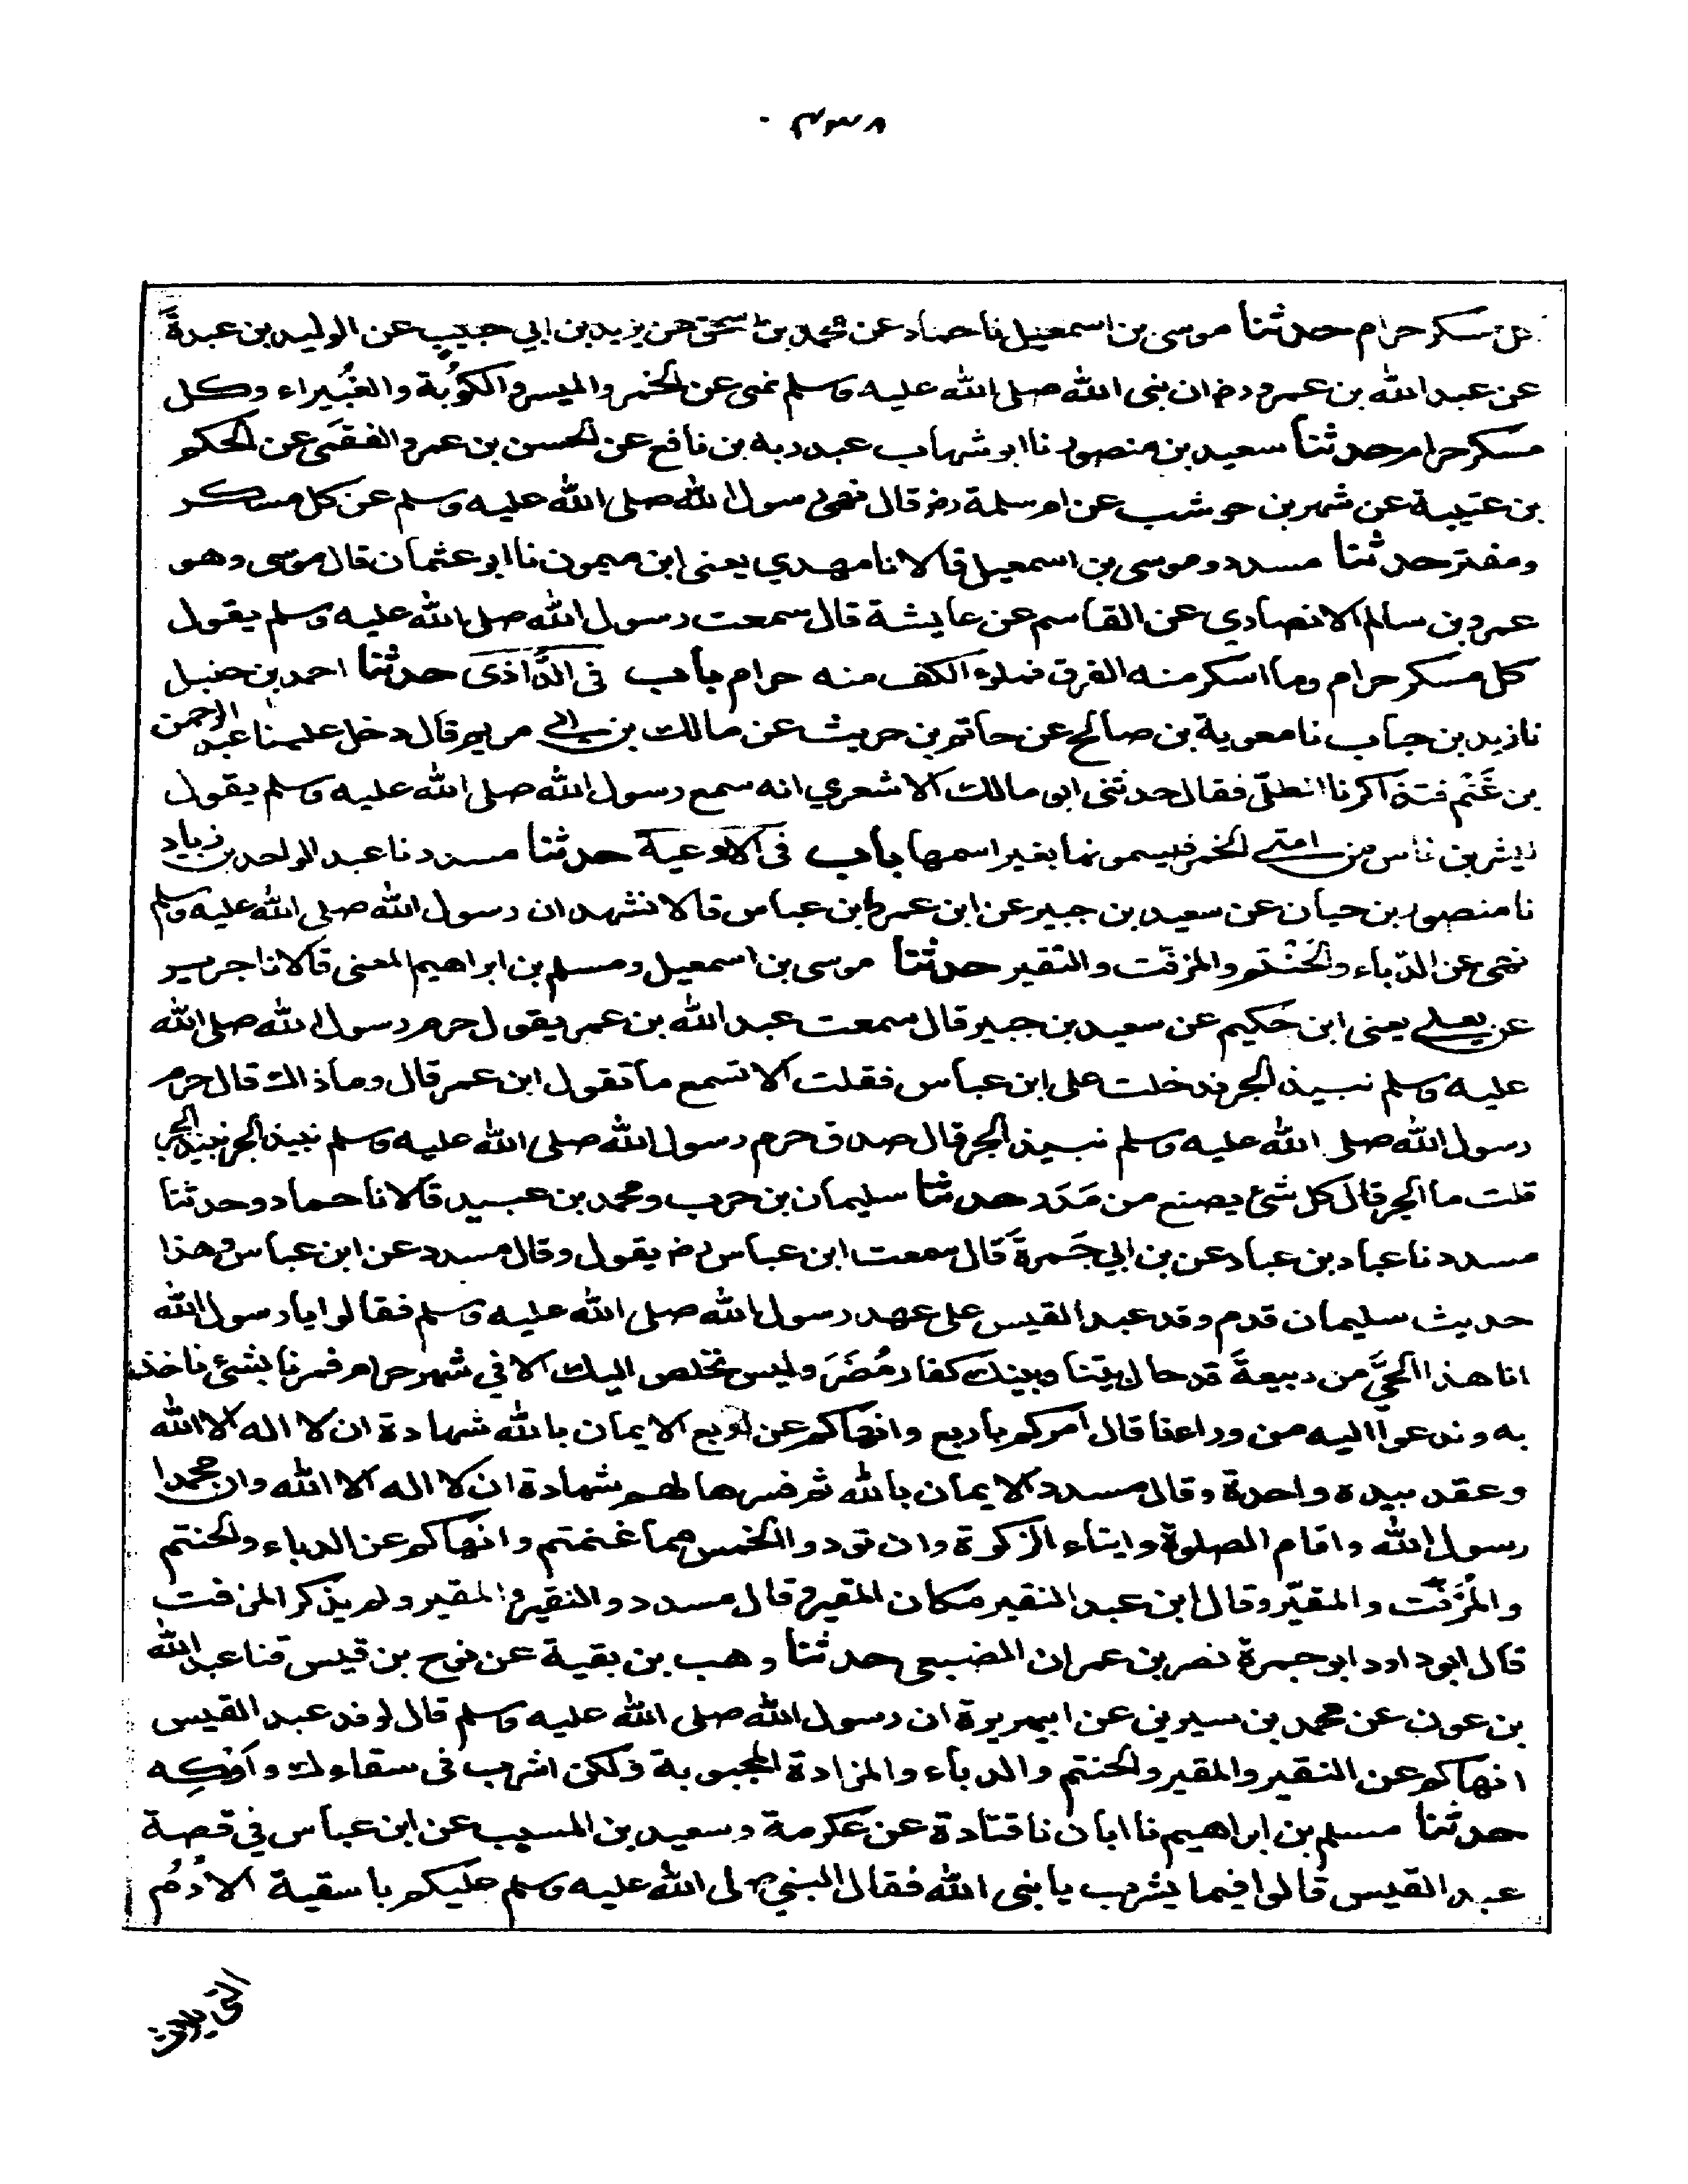 ٣٣٨
كل مسكر حرام حدثنا موسى بن اسمعيل نا حماد عن محمد بن اسحق عن يزيد بن ابي حبيب عن الوليد بن عبدة
عن عبد الله بن عمرو رض ان نبى الله صلى الله عليه وسلم نهى عن الخمر والميسر والكُوبة والغُبيراء وكل
مسكر حرام حدثنا سعيد بن منصور نا ابو شهاب عبد ربه بن نافع عن الحسن بن عمرو الفقمى عن الحكم
بن عتيبة عن شهر بن حوشب عن ام سلمة رض قال نهى رسول الله صلى الله عليه وسلم عن كل مسكر
ومفتر حدثنا مسدد وموسى بن اسمعيل قالا نا مهدي يعنى ابن ميمون نا ابو عثمان قال موسى وهو
عمرو بن سالم الانصاري عن القاسم عن عايشة قال سمعت رسول الله صلى الله عليه وسلم يقول
كل مسكر حرام وما اسكر منه الفرق فملؤ الكف منه حرام باب فى الدَّاذى حدثنا احمد بن حنبل
نا زيد بن حباب نا معوية بن صالح عن حاتم بن حريث عن مالك بن ابي مريم قال دخل علينا عبد الرحمن
بن غَنْم فتذاكرنا الطلّى فقال حدثنى ابو مالك الاشعري انه سمع رسول الله صلى الله عليه وسلم يقول
ليشربن ناس من امتي الخمر فيسمونها بغير اسمها باب فى الاوعية حدثنا مسدد نا عبد الواحد بن زياد
نا منصور بن حيان عن سعيد بن جبير عن ابن عمر وابن عباس قالا نشهد ان رسول الله صلى الله عليه وسلم
نهى عن الدّباء والحَنْتم والمزفّت والنّقير حدثنا موسى بن اسمعيل ومسلم بن ابراهيم المعنى قالا نا جرير
عن يعلي يعنى ابن حكيم عن سعيد بن جبير قال سمعت عبد الله بن عمر يقول حرم رسول الله صلى الله
عليه وسلم نبيذ الجر فدخلت على ابن عباس فقلت الا تسمع ما تقول ابن عمر قال وما ذاك قال حرم
رسول الله صلى الله عليه وسلم نبيذ الجر قال صدق حرم رسول الله صلى الله عليه وسلم نبيذ الجر نبيذ الجر
قلت ما الجر قال كل شئ يصنع من مَدَر حدثنا سليمان بن حرب ومحمد بن عبيد قالا نا حماد وحدثنا
مسدد نا عباد بن عباد عن بن ابي جَمرةَ قال سمعت ابن عباس رض يقول وقال مسدد عن ابن عباس وهذا
حديث سليمان قدم وفد عبد القيس على عهد رسول الله صلى الله عليه وسلم فقالوا يا رسول الله
انا هذا الحَّي من ربيعةَ قد حال بيننا وبينك كفار مُضَرَ وليس نخلص اليك الا في شهر حرام فمرنا بشئ ناخذ
به وندعوا اليه من وراءنا قال امركم باربع وانهاكم عن اربع الايمان بالله شهادة ان لا اله الا الله
وعقد بيده واحدة وقال مسدد الايمان بالله ثم فسرها لهم شهادة ان لا اله الا الله وان محمدا
رسول الله واقام الصلوة وايتاء الزكوة وان تودوا الخمس مما غنمتم وانهاكم عن الدباء والحنتم
والمُزَفَّت والمقيّر وقال ابن عبد النقير مكان المقير وقال مسدد والنقير والمقير ولم يذكر المزفت
قال ابو داود ابو جمرة نصر بن عمران الضبعى حدثنا وهب بن بقية عن نوح بن قيس قنا عبد الله
بن عون عن محمد بن سيرين عن ابيهريرة ان رسول الله صلى الله عليه وسلم قال لوفد عبد القيس
انهاكم عن النقير والمقير والحنتم والدباء والمزادة المجبوبة ولكن اشرب فى سقاءك واَوْكِه
حدثنا مسلم بن ابراهيم نا ابان نا قتادة عن عكرمة وسعيد بن المسيب عن ابن عباس في قصة
عبد القيس قالوا فيما يشرب يا نبى الله فقال النبي صلى الله عليه وسلم عليكم باسقية الادُمُ